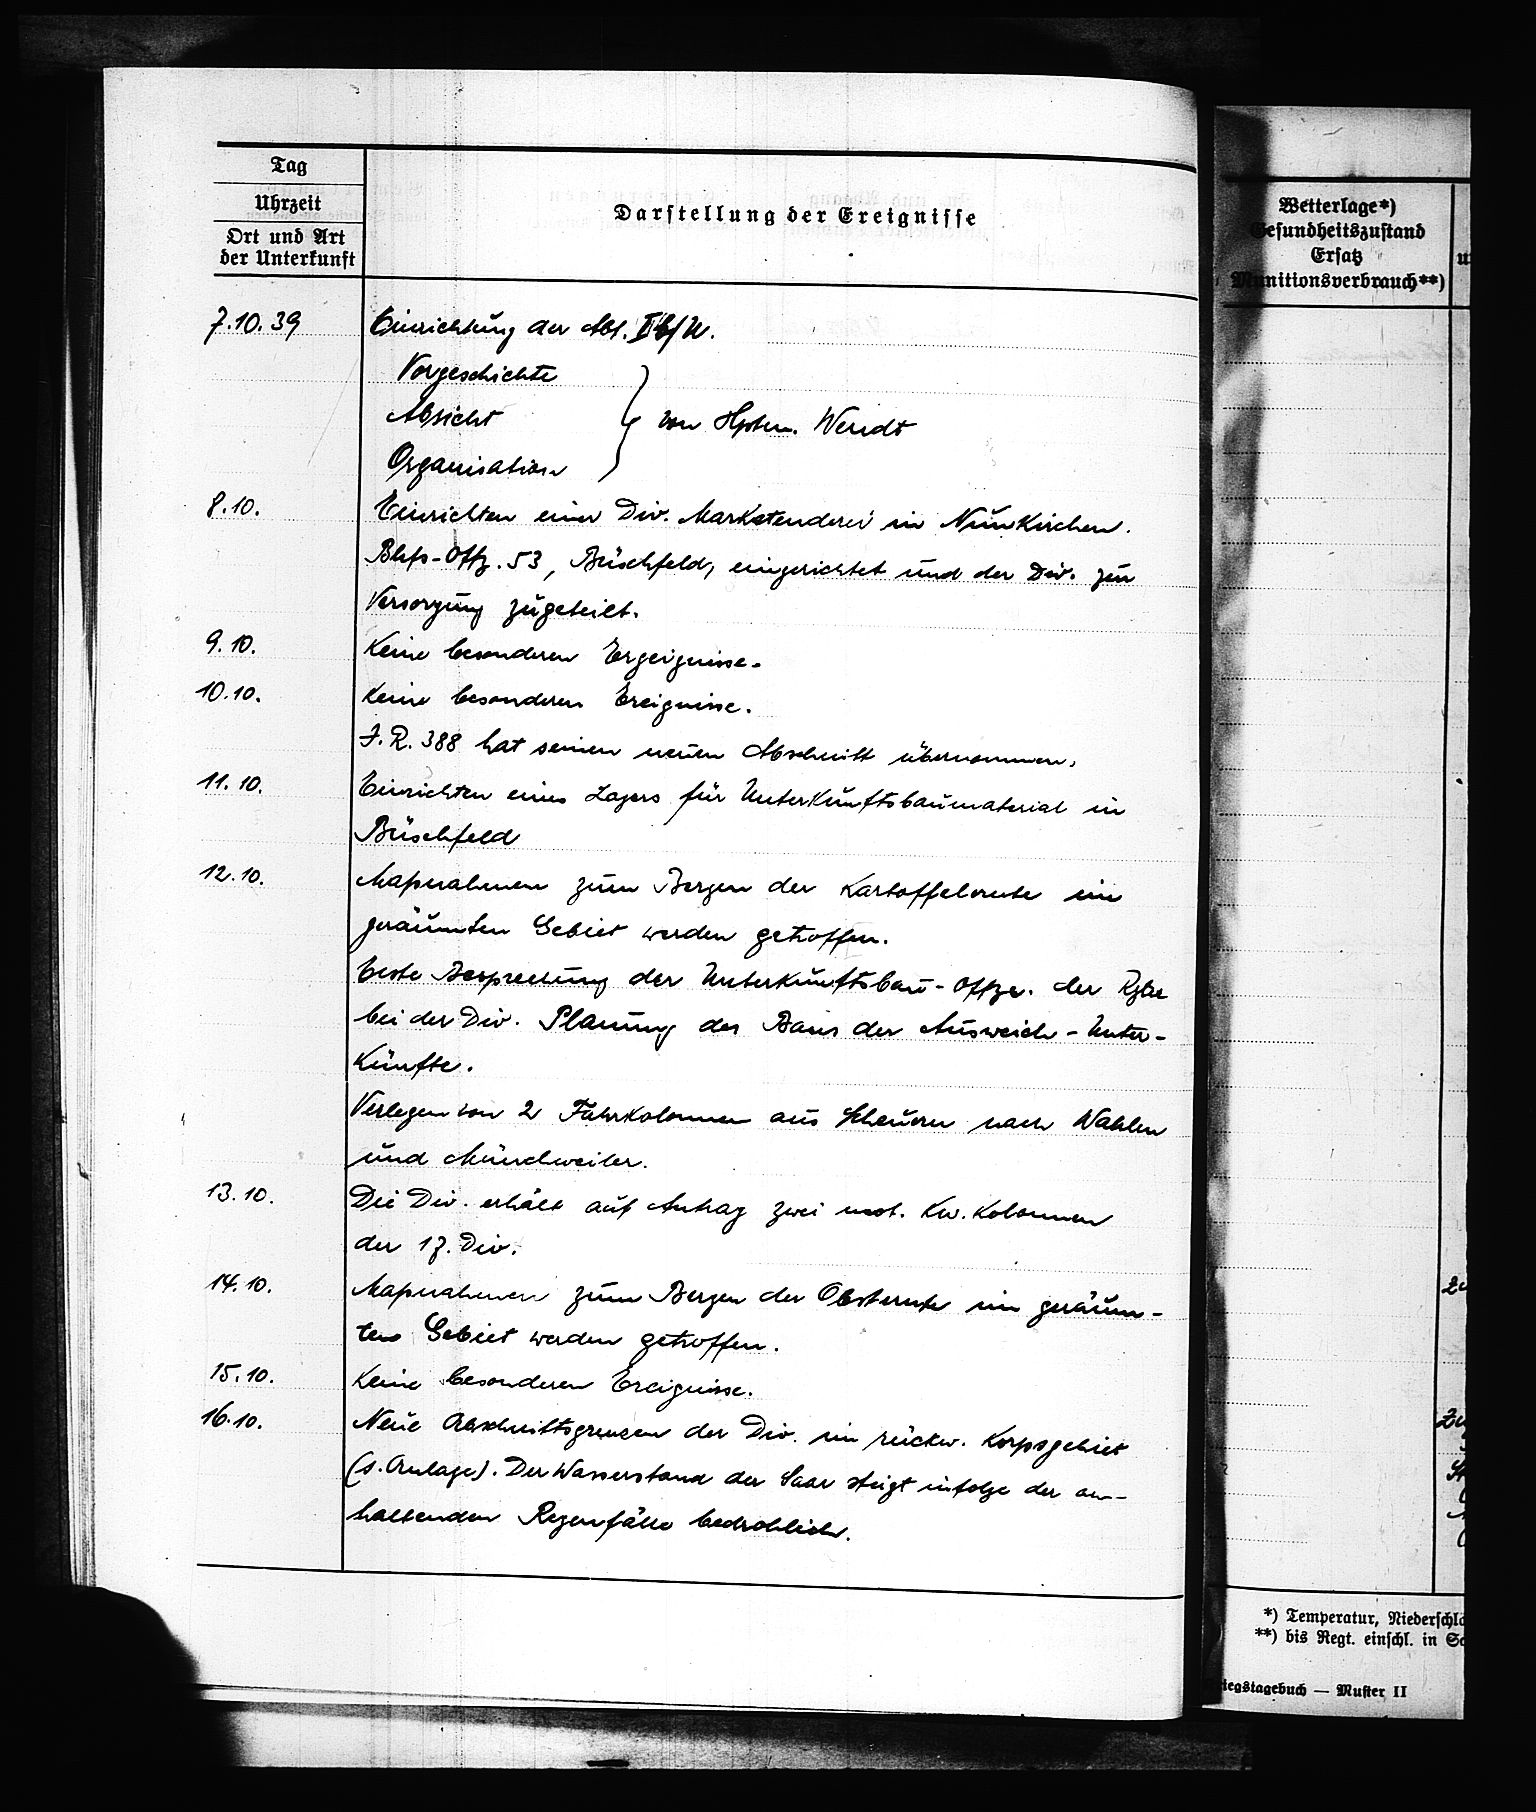 Tag
Uhrzeit
Ort und Art
der Unterkunft
Darstellung der Ereignisse
7.10.39 Einrichtung der Abt. Ib/U.
Vorgeschichte
Absicht
von Hptm. Wendt
Organisation
8.10. Einrichten einer Div. Marketenderei in Nünkirchen.
53, Büschfeld, eingerichtet und der Div. zur
Versorgung zugeteilt.
9.10. Keine besonderen Ergeignisse.
10.10. Keine besonderen Ereignisse.
J.R. 388 hat seinen neuen Abschnitt übernommen.
11.10. Einrichten eines Lagers für Unterkunftsbaumaterial in
Büschfeld
12.10. Maßnahmen zum Bergen der Kartoffelernte im
geräumten Gebiet werden getroffen.
Erste Besprechung der Unterkunftsbau-Offze. der
bei der Div. Planung des Baues der Ausweich-Unter-
künfte.
Verlegen von 2 Fahrkolonnen aus Scheuern nach Wahlen
und Münchweiler.
13.10. Die Div. erhält auf Antrag zwei mot. Kw. Kolonnen
der 17. Div.
14.10. Maßnahmen zum Bergen der Obsternte im geräum-
ten Gebiet werden getroffen.
15.10. Keine besonderen Ereignisse.
16.10. Neue Abschnittsgrenzen der Div. im rückw. Korpsgebiet
(s. Anlage). Der Wasserstand der Saar steigt infolge der an-
haltenden Regenfälle bedrohlich.
Wetterlage*)
Gesundheitszustand
Ersatz
Munitionsverbrauch**)
*) Temperatur, Niederschlä
**) bis Regt. einschl. in Sc
iegstagebuch — Muster II